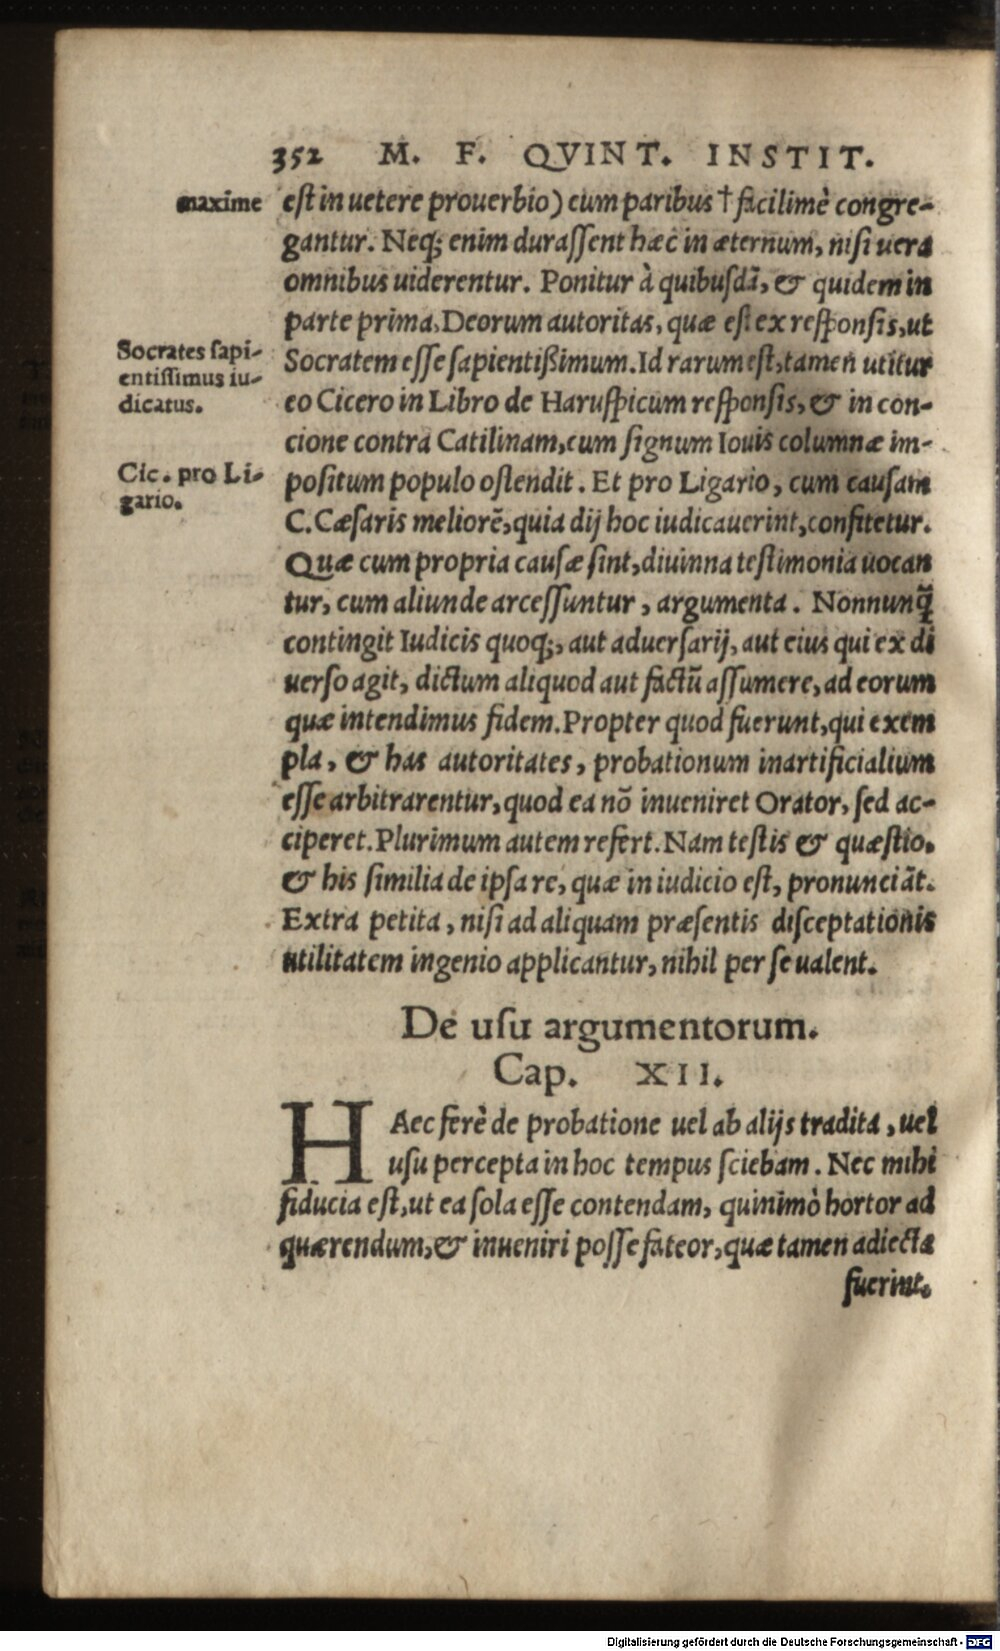 352 M. F. QVINT. INSTIT.
maxime
est in uetere prouerbio) cum paribus † facilimè congre-
gantur. Neq; enim durassent hæc in æternum, nisi uera
omnibus uiderentur. Ponitur à quibusdā, & quidem in
parte prima, Deorum autoritas, quæ est ex responsis, ut
Socrates sapi-
entissimus iu-
dicatus.
Socratem esse sapientißimum. Id rarum est, tamen utitur
eo Cicero in Libro de Haruspicum responsis, & in con-
cione contra Catilinam, cum signum Iouis columnæ im-
Cic. pro Li-
gario.
positum populo ostendit. Et pro Ligario, cum causam
C. Cæsaris meliorē, quia dij hoc iudicauerint, confitetur.
Quæ cum propria causæ sint, diuinna testimonia uocan
tur, cum aliunde arcessuntur, argumenta. Nonnunq̃
contingit Iudicis quoq;, aut aduersarij, aut eius qui ex di
uerso agit, dictum aliquod aut factū assumere, ad eorum
quæ intendimus fidem. Propter quod fuerunt, qui exem
pla, & has autoritates, probationum inartificialium
esse arbitrarentur, quod ea nō inueniret Orator, sed ac-
ciperet. Plurimum autem refert. Nam testis & quæstio.
& his similia de ipsa re, quæ in iudicio est, pronunciāt.
Extra petita, nisi ad aliquam præsentis disceptationis
utilitatem ingenio applicantur, nihil per se ualent.
De usu argumentorum.
Cap. XII.
HAec ferè de probatione uel ab alijs tradita, uel
usu percepta in hoc tempus sciebam. Nec mihi
fiducia est, ut ea sola esse contendam, quinimò hortor ad
quærendum, & inueniri posse fateor, quæ tamen adiecta
fuerint.
Digitalisierung gefördert durch die Deutsche Forschungsgemeinschaft - DFG